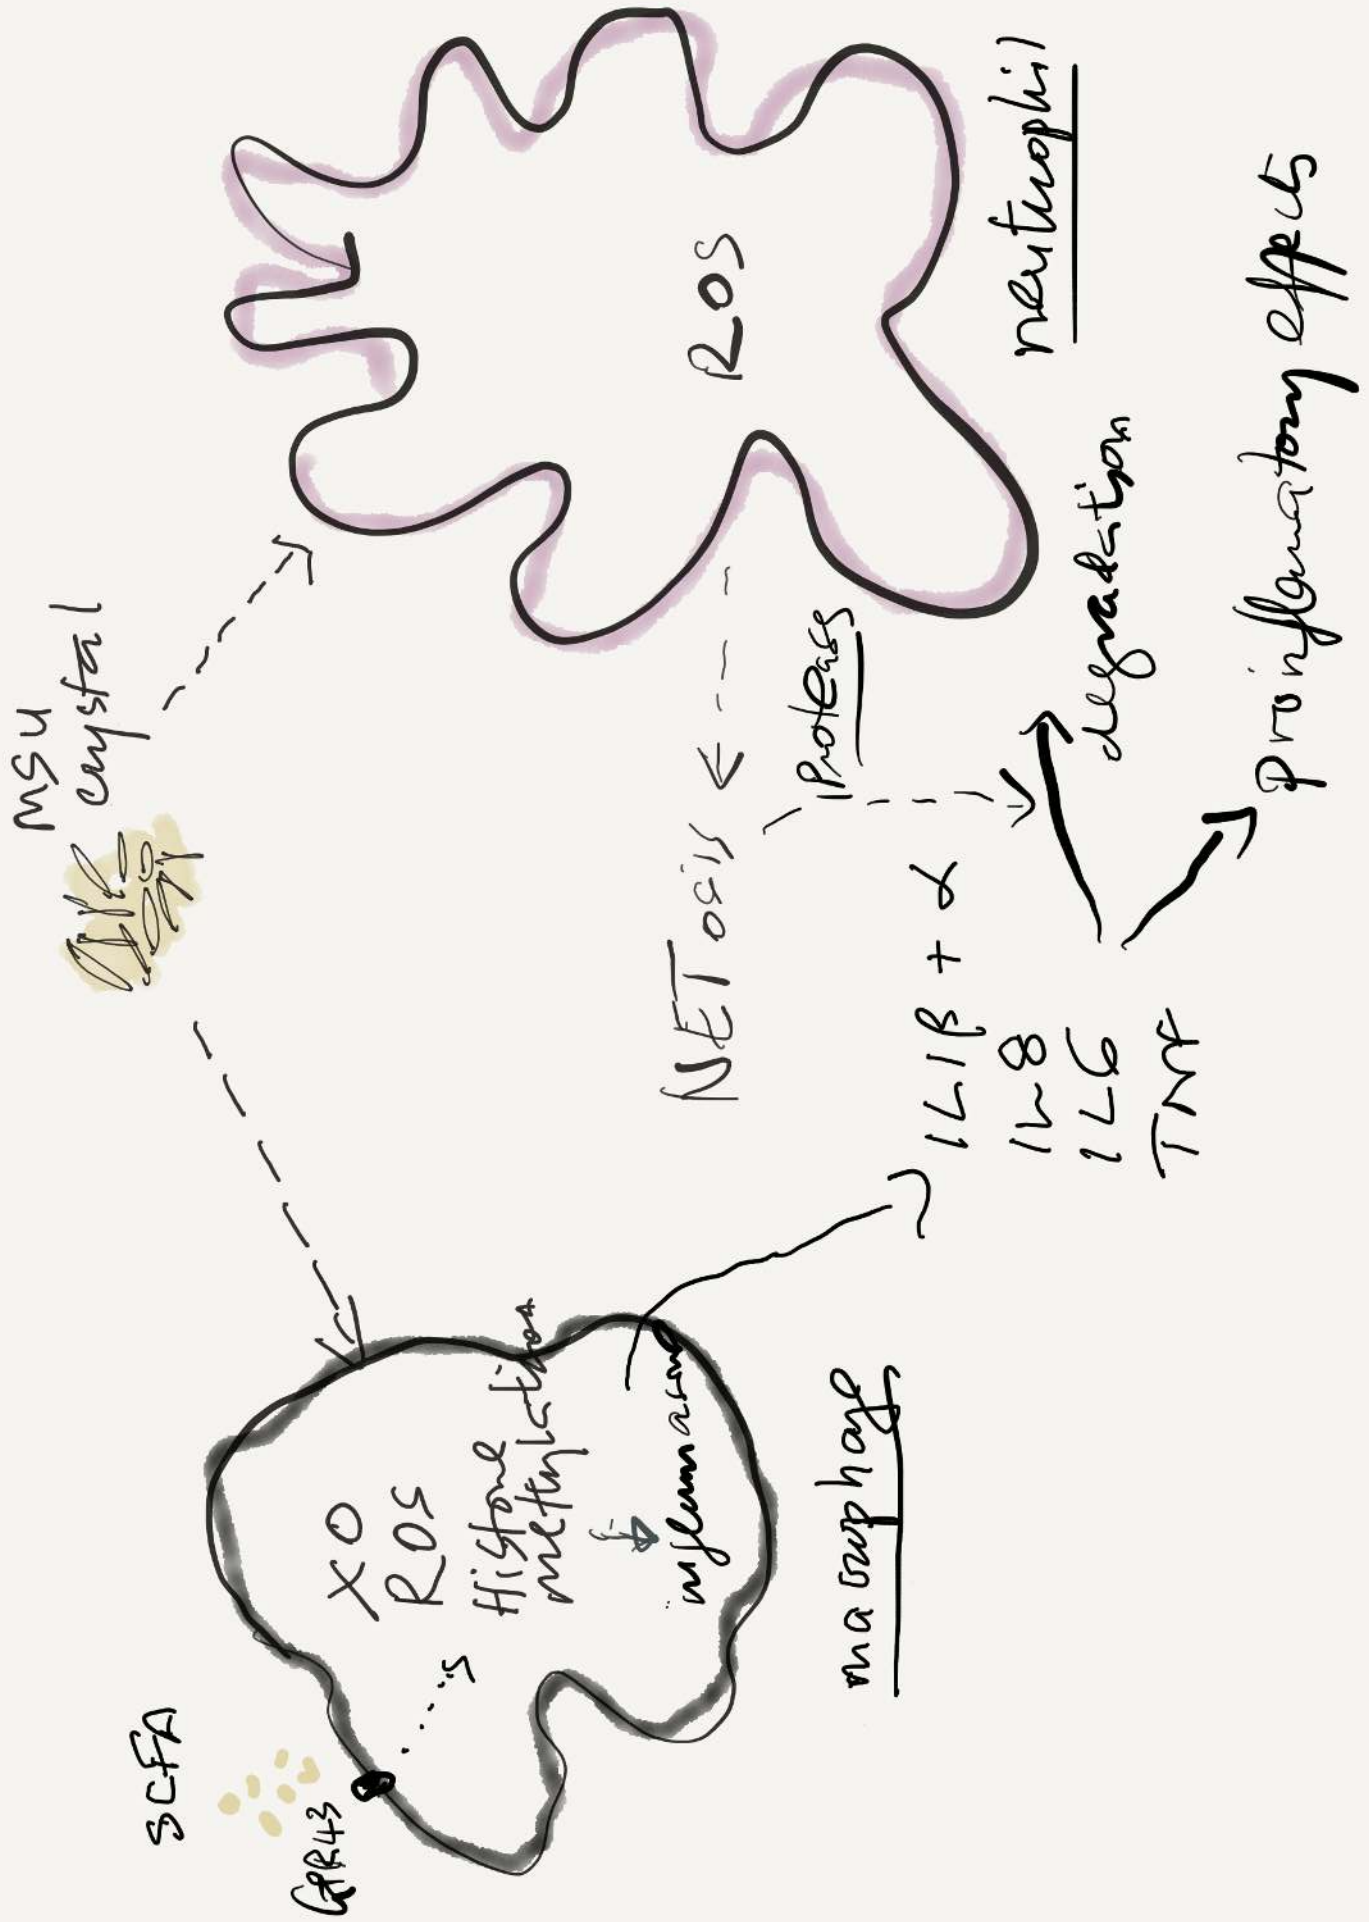 MSU
crystal
SCFA
GPR43
XO
ROS
Histone
methylation
inflammasome
macrophage
ROS
neutrophil
NETosis
Proteases
IL1β + α
IL8
IL6
TNF
degradation
Proinflamatory effects